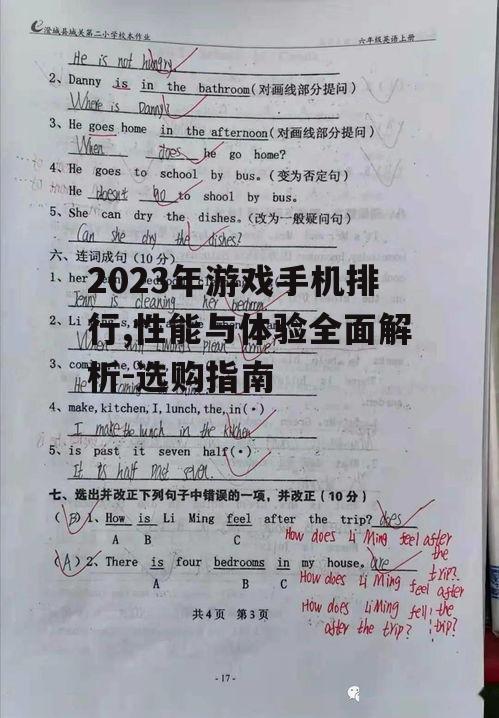 澄城县城关第二小学校本作业 六年级英语上册
He is not hungry
2、Danny is in the bathroom(对画线部分提问)
Where is Danny?
3、He goes home in the afternoon(对画线部分提问)
When does he go home?
4、He goes to school by bus。(变为否定句)
He doesn't go to shool by bus.
5、She can dry the dishes。(改为一般疑问句)
Can she dry the dishes?
六、连词成句(10分)
2023年游戏手机排
1、her
Jenny is cleaning her bedroom.
行,性能与体验全面解
2、Li
please
3、com
析-选购指南
He
4、make,kitchen,I,lunch,the,in(·)
I make the lunch in the kitchen
5、is past it seven half(·)
It is half past seven.
七、选出并改正下列句子中错误的一项，并改正(10分)
(B)1、How is Li Ming feel after the trip? does
A B C
How does Li Ming feel after the trip?
(A)2、There is four bedrooms in my house。are
A B C
How does Li Ming feel after the trip?
How does Li Ming fell after the trip?
共4页 第3页
-17-